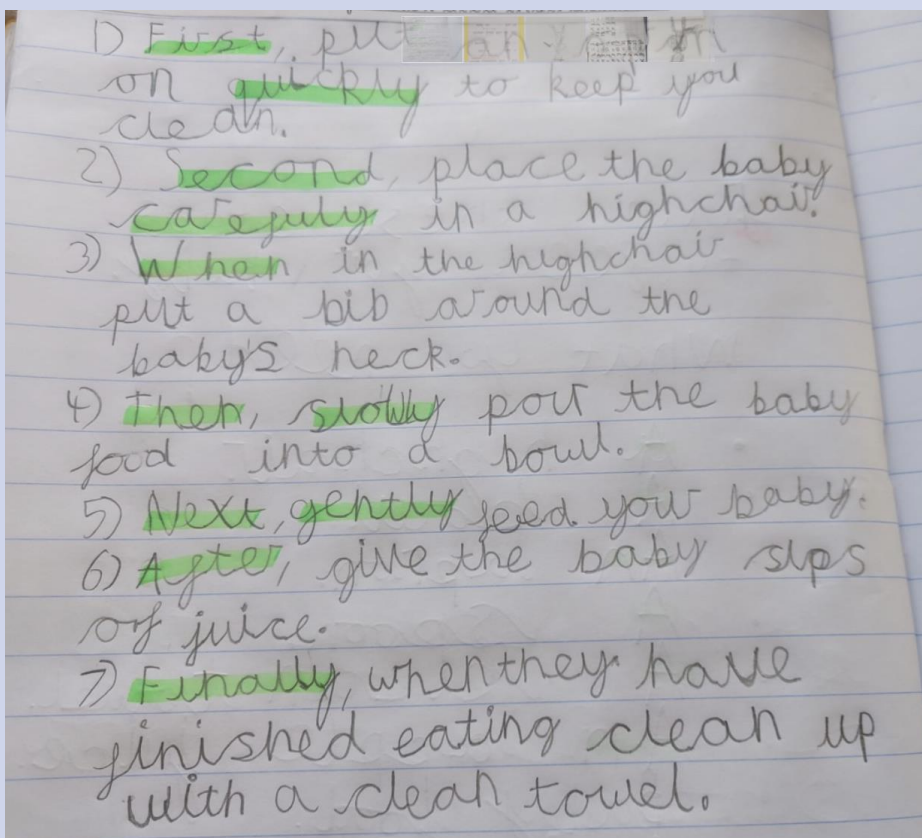 1) First, put an
on quickly to keep you
clean.
2) Second, place the baby
carefuly in a highchair.
3) When in the highchair
put a bib around the
baby's neck.
4) Then, slowly pour the baby
food into a bowl.
5) Next, gently feed your baby.
6) After, give the baby sips
of juice.
7) Finally, when they have
finished eating clean up
with a clean towel.